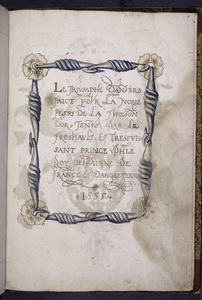 LE TRIUMPHE DANVERS
FAICT POUR LA NOBLE
FESTE DE LA THOISON
DOR TENUE PAR LE
TRESHAULT & TRESPUIS
SANT PRINCE PHLE
ROY DESPAIGNE DE
FRANCE & DANGLETERRE
1555